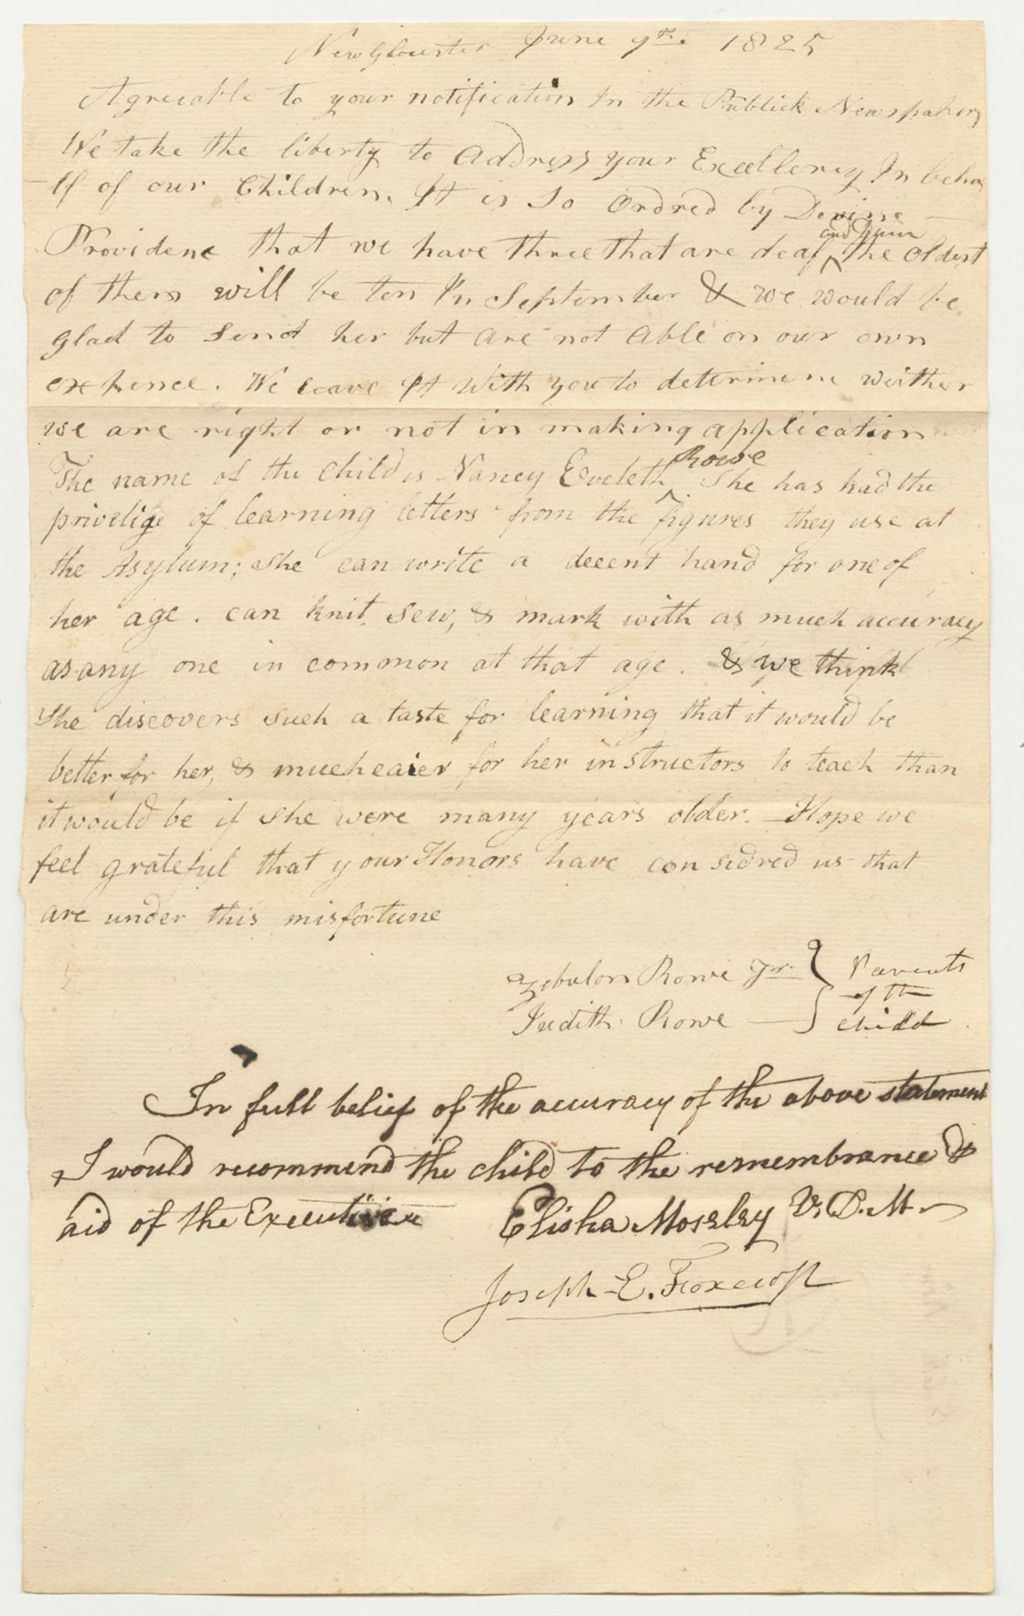 New Gloucester June 9th. 1825
Agreeable to your notification In the Publick Newspapers
We take the liberty to Address your Excellency In beha
lf of our Children. It is So Ordred by Devine
Providenc that we have three that are deaf ^and dum the Oldest
of them will be ten In September & we would be
glad to send her but are not able on our own
expence. We leave It with you to determine weither
we are right or not in making application
The name of the child is Nancy Eveleth ^Rowe She has had the
privelige of learning letters from the figures they use at
the Asylum; she can write a decent hand for one of
her age. can knit, sew, & mark with as much accuracy
as any one in common at that age. & we think
she discovers such a taste for learning that it would be
better for her, & much eaier for her instructors to teach than
it would be if she were many years older. Hope we
feel grateful that your Honors have considred us that
are under this misfortune
Zebulon Rowe Jr. } Parents
of th
Judith Rowe — } child
In full belief of the accuracy of the above statement
I would recommend the child to the remembrance &
aid of the Executive Elisha Moseley V.D.M.
Joseph E. Foxcroft